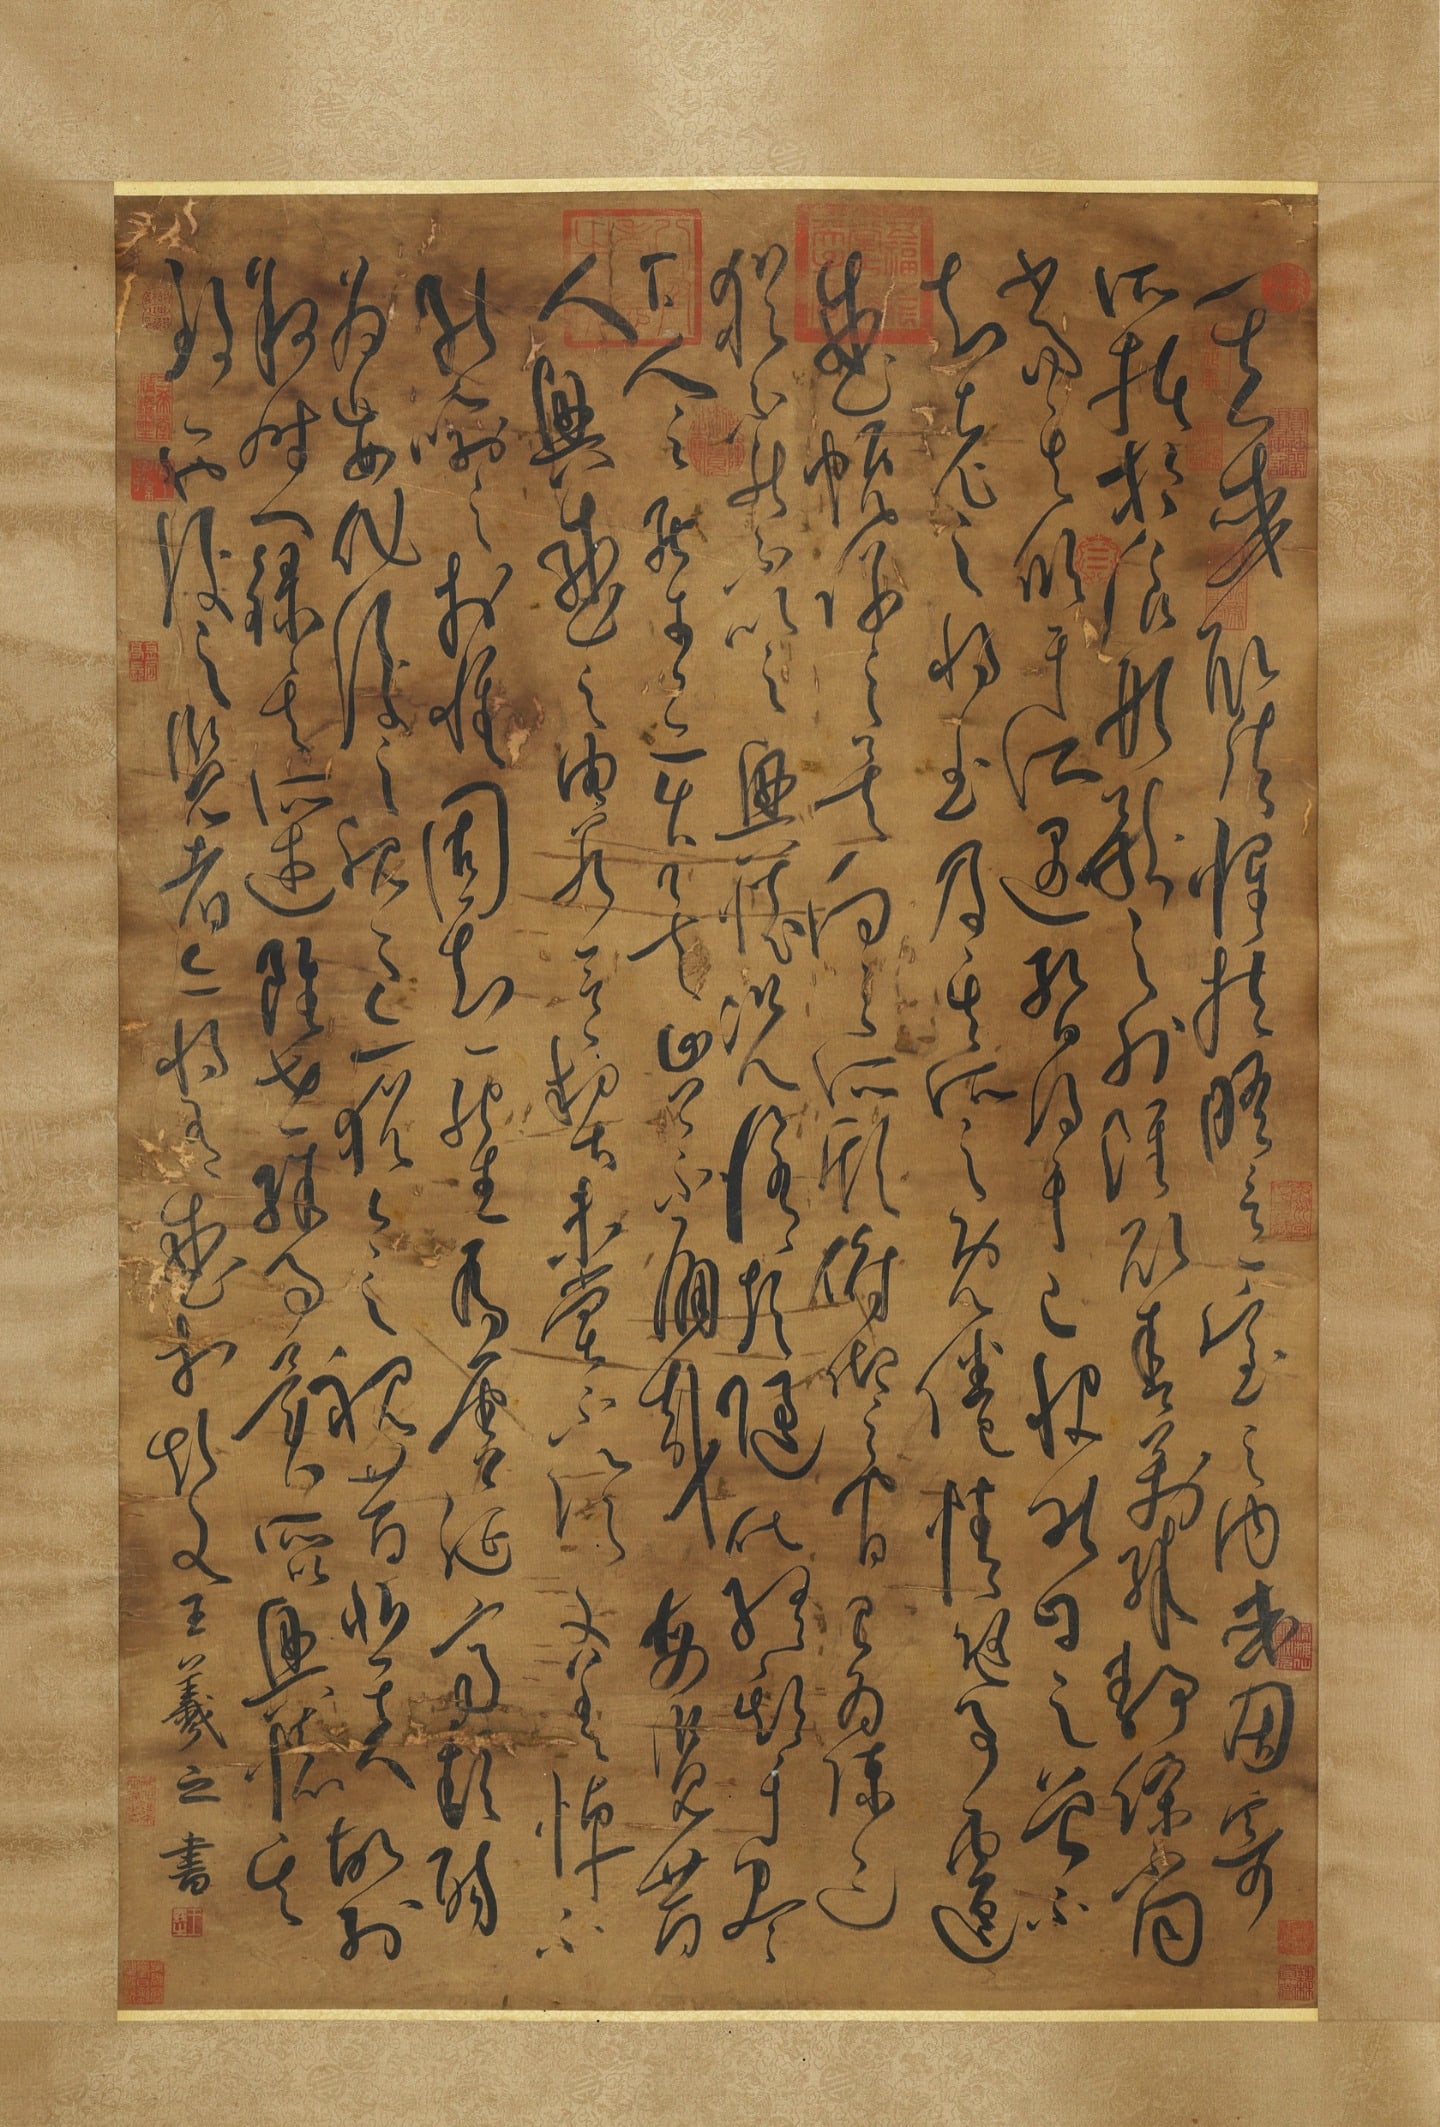 一世或取諸懷抱晤言一室之內或因寄
所托放浪形骸之外雖趣舍萬殊靜躁不同
當其欣于所遇暫得于己快然自足曾不
知老之將至及其所之既倦情隨事遷
感慨係之矣向之所欣俯仰之間已為陳迹
猶不能不以之興懷況脩短隨化終期于盡
古人云死生亦大矣豈不痛哉每覽昔
人興感之由若合一契未嘗不臨文嗟悼不
能喻之於懷固知一死生為虛誕齊彭殤
為妄作後之視今亦猶今之視昔悲夫故列
敘時人錄其所述雖世殊事異所以興懷其
致一也後之覽者亦將有感於斯文王羲之書